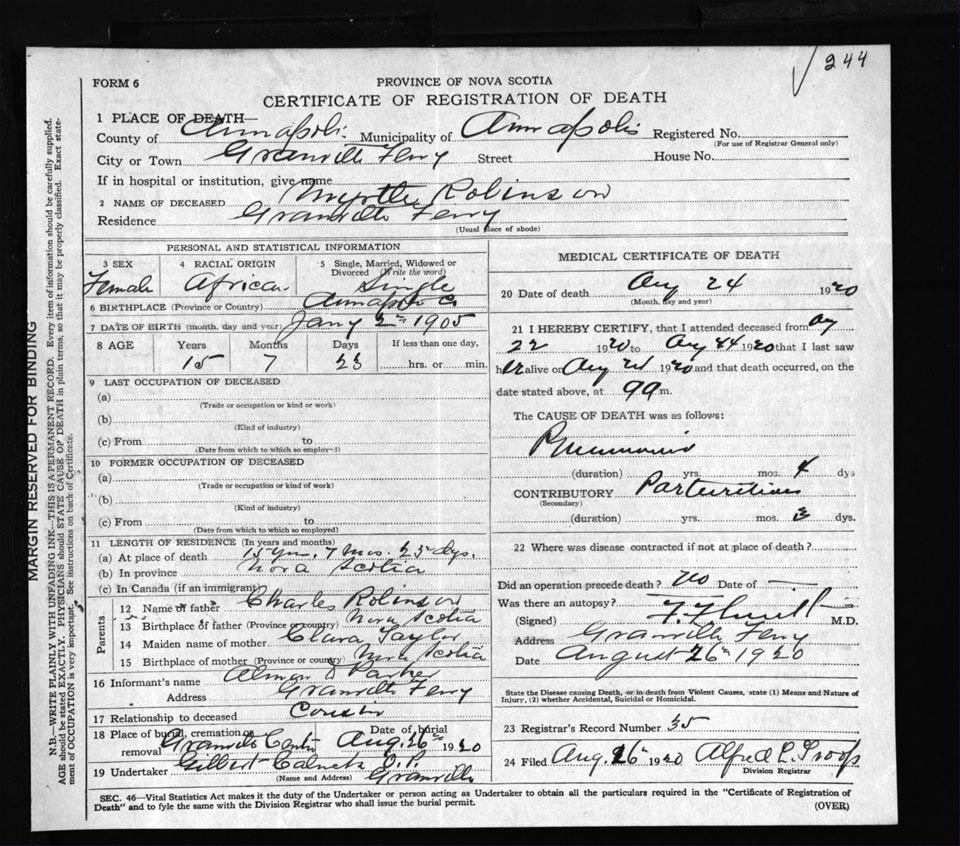 244
FORM 6
PROVINCE OF NOVA SCOTIA
CERTIFICATE OF REGISTRATION OF DEATH
1 PLACE OF DEATH—
County of Annapolis Municipality of Annapolis Registered No.
(For use of Registrar General only)
City or Town Granville Ferry Street House No.
If in hospital or institution, give name
2 NAME OF DECEASED Myrtle Robinson
Residence Granville Ferry
(Usual place of abode)
PERSONAL AND STATISTICAL INFORMATION
3 SEX 4 RACIAL ORIGIN 5 Single, Married, Widowed or Divorced (Write the word)
Female African Single
6 BIRTHPLACE (Province or Country) Annapolis Co
7 DATE OF BIRTH (month, day and year) Jany 2nd 1905
8 AGE Years Months Days If less than one day,
15 7 23 hrs. or min.
9 LAST OCCUPATION OF DECEASED
(a)
(Trade or occupation or kind or work)
(b)
(Kind of industry)
(c) From to
(Date from which to which so employed)
10 FORMER OCCUPATION OF DECEASED
(a)
(Trade or occupation or kind of work)
(b)
(Kind of industry)
(c) From to
(Date from which to which so employed)
11 LENGTH OF RESIDENCE (In years and months)
(a) At place of death 15 yrs. 7 mos. 23 dys.
(b) In province Nova Scotia
(c) In Canada (if an immigrant)
Parents
12 Name of father Charles Robinson
13 Birthplace of father (Province or country) Nova Scotia
14 Maiden name of mother Clara Taylor
15 Birthplace of mother (Province or country) Nova Scotia
16 Informant's name Alman D Parker
Address Granville Ferry
17 Relationship to deceased Cousin
18 Place of burial, cremation or removal Granville Centre Date of burial Aug. 26th 1920
19 Undertaker Gilbert Calnek
(Name and Address) Granville
MEDICAL CERTIFICATE OF DEATH
20 Date of death Aug 24 1920
(Month, day and year)
21 I HEREBY CERTIFY, that I attended deceased from Aug
22 1920 to Aug 24 1920 that I last saw
her alive on Aug 24 1920 and that death occurred, on the
date stated above, at m.
The CAUSE OF DEATH was as follows:
Pneumonia
(duration) yrs. mos. 4 dys
CONTRIBUTORY Parturition
(Secondary)
(duration) yrs. mos. 3 dys.
22 Where was disease contracted if not at place of death?
Did an operation precede death? No Date of —
Was there an autopsy?
(Signed) M.D.
Address Granville Ferry
Date August 26th 1920
State the Disease causing Death, or in death from Violent Causes, state (1) Means and Nature of
Injury, (2) whether Accidental, Suicidal or Homicidal.
23 Registrar's Record Number 35
24 Filed Aug. 26th 1920 Alfred L. Troop
Division Registrar
SEC. 46—Vital Statistics Act makes it the duty of the Undertaker or person acting as Undertaker to obtain all the particulars required in the "Certificate of Registration of
Death" and to fyle the same with the Division Registrar who shall issue the burial permit.
(OVER)
MARGIN RESERVED FOR BINDING
N.B.—WRITE PLAINLY WITH UNFADING INK—THIS IS A PERMANENT RECORD. Every item of information should be carefully supplied.
AGE should be stated EXACTLY. PHYSICIANS should STATE CAUSE OF DEATH in plain terms, so that it may be properly classified. Exact state-
ment of OCCUPATION is very important. See instructions on back of Certificate.